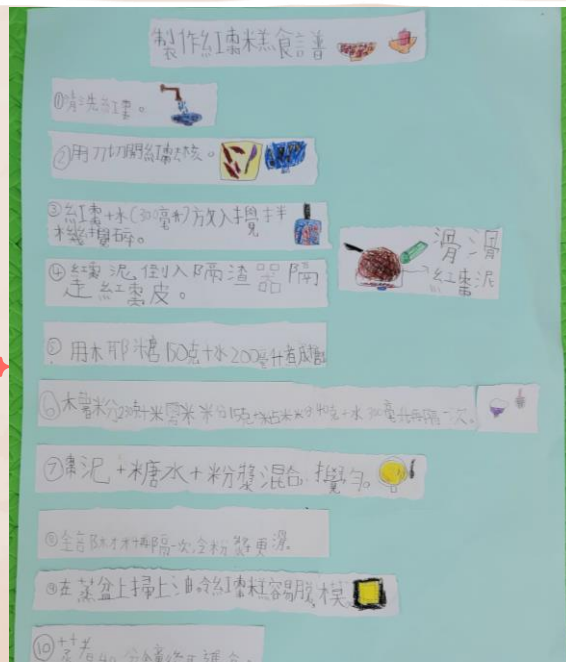 製作紅棗糕食譜
①清洗紅棗。
②用刀切開紅棗去核。
③紅棗+水(30毫升)放入攪拌
機攪碎。
④紅棗泥倒入隔渣器隔
走紅棗皮。
滑滑
紅棗泥
⑤用木耶糖150克+水200毫升煮成糖
⑥木薯粉230克+水 300毫升再隔一次。
⑦棗泥+糖水+粉漿混合攪勻。
⑧全部材料隔一次令粉漿更滑
⑨在蒸盆上掃上油令紅棗糕容易脫模
⑩蒸